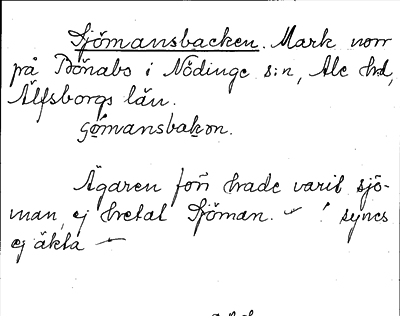 Sjömansbacken. Mark norr
på Bönabo i Nödinge s:n, Ale hd,
Älfsborgs län.
Ägaren förr hade varit sjö-
man, ej hetat Sjöman. – ! synes
ej äkta –